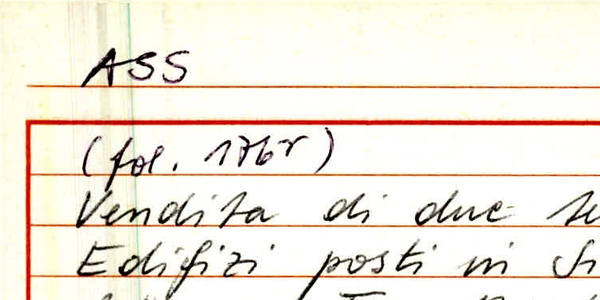 ASS
(fol. 176r)
Vendita di due
Edifizi posti in